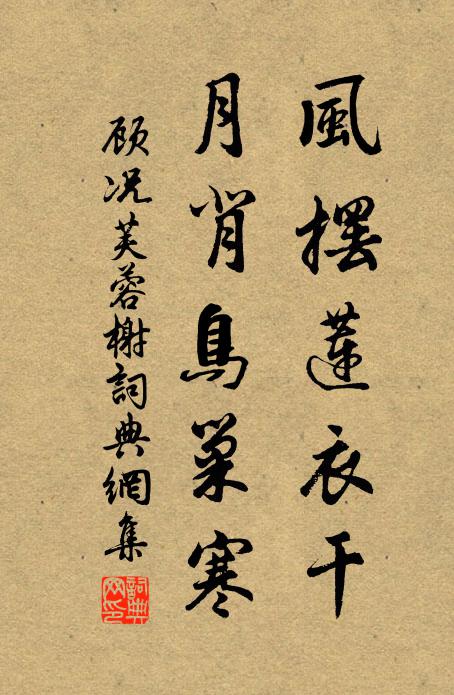 風擺蓮衣干
月背鳥巢寒
顾况芙蓉榭詞典網集
詞典網印